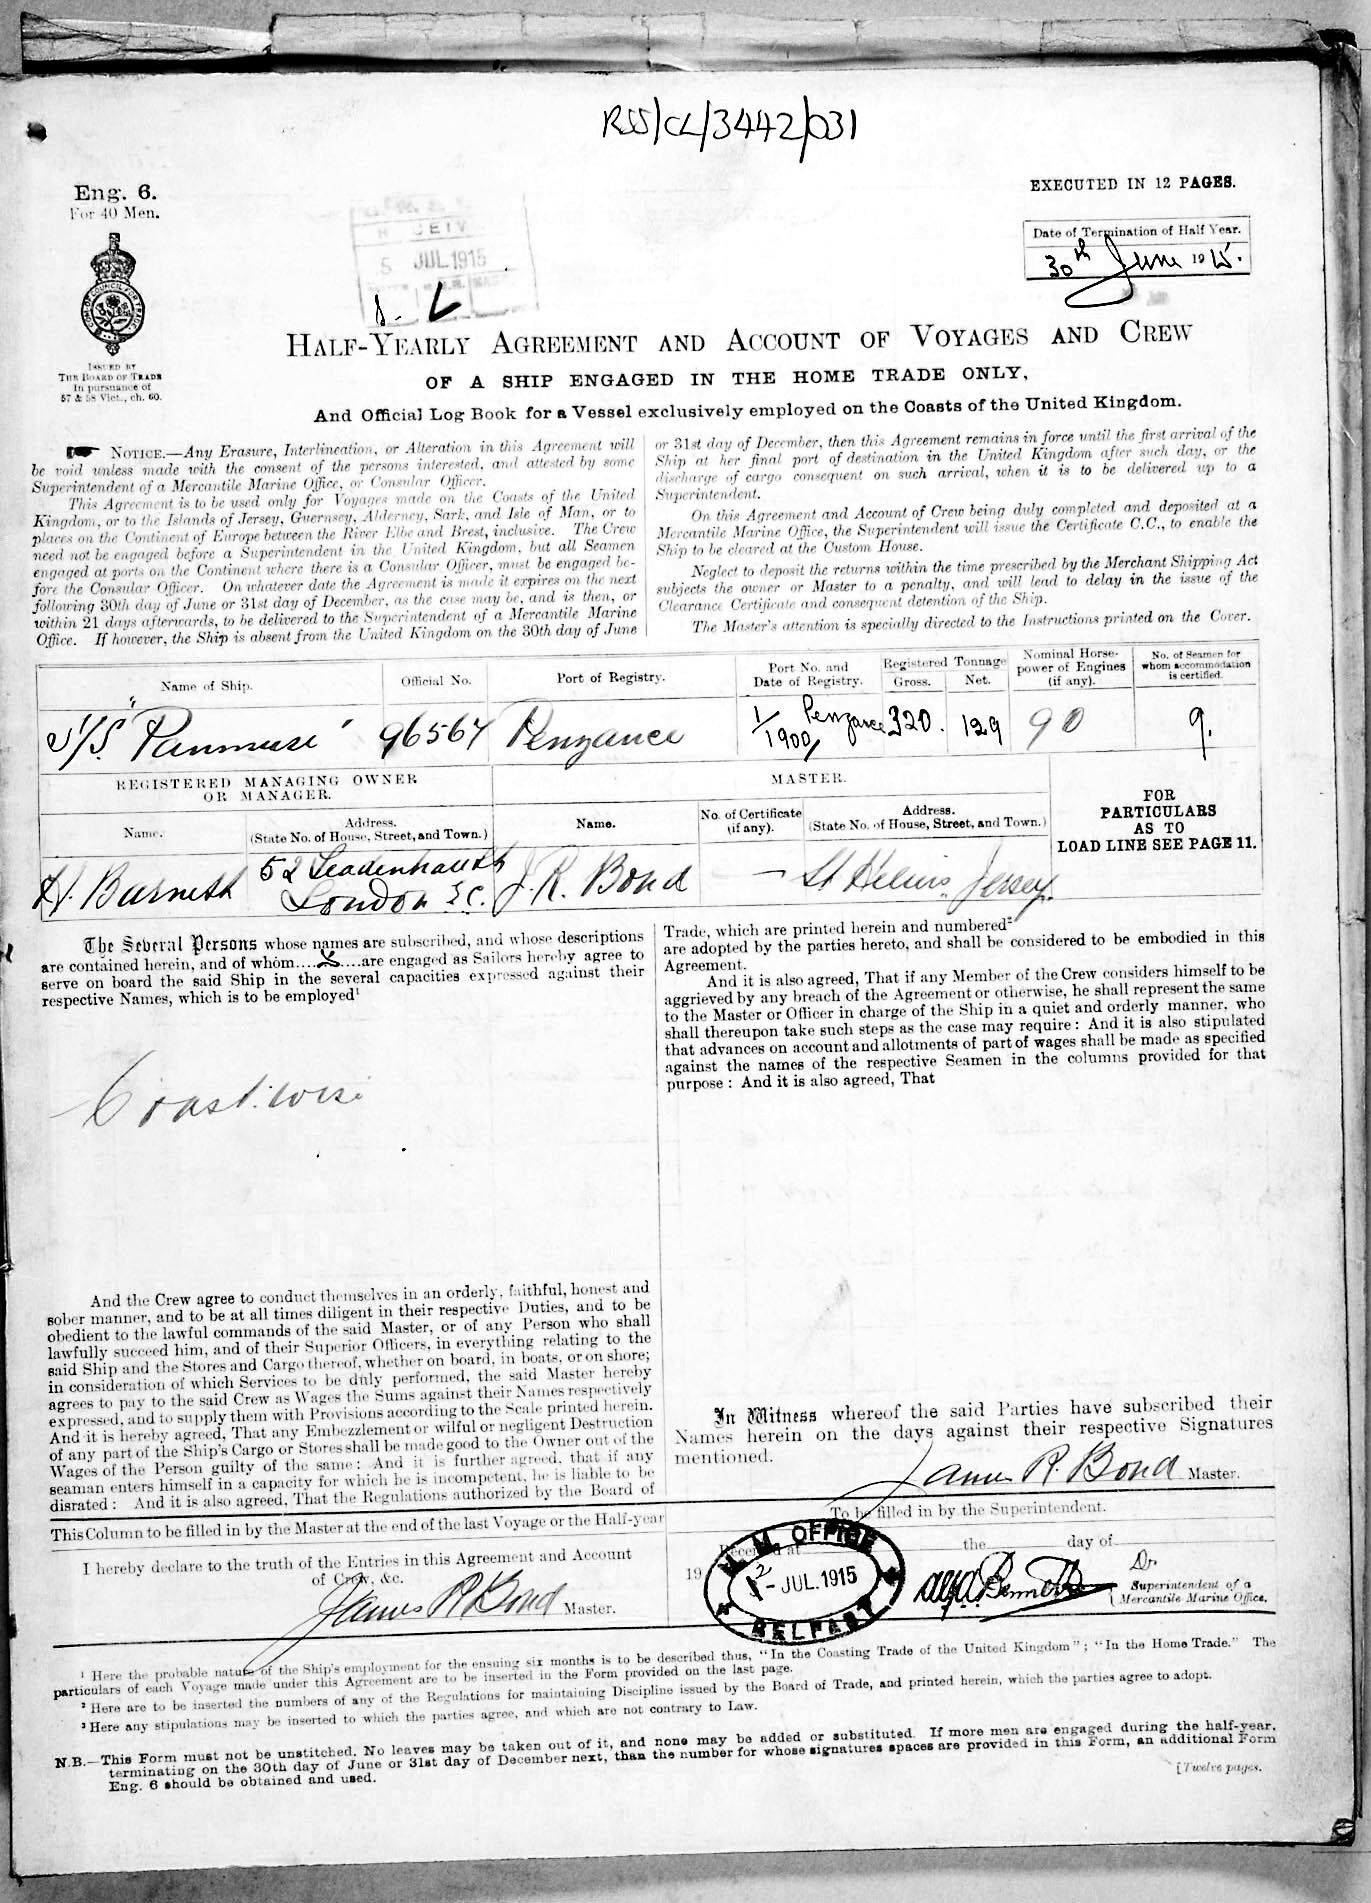 RSS/CL/3442/031
Eng. 6.
For 40 Men.
EXECUTED IN 12 PAGES.
Date of Termination of Half Year.
30th June 1915.
CEIV
5 JUL 1915
COM. OF COUNCIL FOR TRADE
ISSUED BY
THE BOARD OF TRADE
In pursuance of
57 & 58 Vict., ch. 60.
HALF-YEARLY AGREEMENT AND ACCOUNT OF VOYAGES AND CREW
OF A SHIP ENGAGED IN THE HOME TRADE ONLY,
And Official Log Book for a Vessel exclusively employed on the Coasts of the United Kingdom.
NOTICE.—Any Erasure, Interlineation, or Alteration in this Agreement will
be void unless made with the consent of the persons interested, and attested by some
Superintendent of a Mercantile Marine Office, or Consular Officer.
This Agreement is to be used only for Voyages made on the Coasts of the United
Kingdom, or to the Islands of Jersey, Guernsey, Alderney, Sark, and Isle of Man, or to
places on the Continent of Europe between the River Elbe and Brest, inclusive. The Crew
need not be engaged before a Superintendent in the United Kingdom, but all Seamen
engaged at ports on the Continent where there is a Consular Officer, must be engaged be-
fore the Consular Officer. On whatever date the Agreement is made it expires on the next
following 30th day of June or 31st day of December, as the case may be, and is then, or
within 21 days afterwards, to be delivered to the Superintendent of a Mercantile Marine
Office. If however, the Ship is absent from the United Kingdom on the 30th day of June
or 31st day of December, then this Agreement remains in force until the first arrival of the
Ship at her final port of destination in the United Kingdom after such day, or the
discharge of cargo consequent on such arrival, when it is to be delivered up to a
Superintendent.
On this Agreement and Account of Crew being duly completed and deposited at a
Mercantile Marine Office, the Superintendent will issue the Certificate C.C., to enable the
Ship to be cleared at the Custom House.
Neglect to deposit the returns within the time prescribed by the Merchant Shipping Act
subjects the owner or Master to a penalty, and will lead to delay in the issue of the
Clearance Certificate and consequent detention of the Ship.
The Master's attention is specially directed to the Instructions printed on the Cover.
Name of Ship. Official No. Port of Registry. Port No. and Date of Registry. Registered Tonnage Gross. Net. Nominal Horse-power of Engines (if any). No. of Seamen for whom accommodation is certified.
S/S "Panmuse" 96564 Penzance 1/1900 Penzance 320. 129 90 9.
REGISTERED MANAGING OWNER
OR MANAGER.
MASTER.
Name. Address. (State No. of House, Street, and Town.) Name. No. of Certificate (if any). Address. (State No. of House, Street, and Town.)
FOR
PARTICULARS
AS TO
LOAD LINE SEE PAGE 11.
52 Leadenhall St
London E.C. J. R. Bond — St Heliers, Jersey.
The Several Persons whose names are subscribed, and whose descriptions
are contained herein, and of whom....X....are engaged as Sailors hereby agree to
serve on board the said Ship in the several capacities expressed against their
respective Names, which is to be employed¹
Coastwise
And the Crew agree to conduct themselves in an orderly, faithful, honest and
sober manner, and to be at all times diligent in their respective Duties, and to be
obedient to the lawful commands of the said Master, or of any Person who shall
lawfully succeed him, and of their Superior Officers, in everything relating to the
said Ship and the Stores and Cargo thereof, whether on board, in boats, or on shore;
in consideration of which Services to be duly performed, the said Master hereby
agrees to pay to the said Crew as Wages the Sums against their Names respectively
expressed, and to supply them with Provisions according to the Scale printed herein.
And it is hereby agreed, That any Embezzlement or wilful or negligent Destruction
of any part of the Ship's Cargo or Stores shall be made good to the Owner out of the
Wages of the Person guilty of the same: And it is further agreed, that if any
seaman enters himself in a capacity for which he is incompetent, he is liable to be
disrated: And it is also agreed, That the Regulations authorized by the Board of
Trade, which are printed herein and numbered²
are adopted by the parties hereto, and shall be considered to be embodied in this
Agreement.
And it is also agreed, That if any Member of the Crew considers himself to be
aggrieved by any breach of the Agreement or otherwise, he shall represent the same
to the Master or Officer in charge of the Ship in a quiet and orderly manner, who
shall thereupon take such steps as the case may require: And it is also stipulated
that advances on account and allotments of part of wages shall be made as specified
against the names of the respective Seamen in the columns provided for that
purpose: And it is also agreed, That
In Witness whereof the said Parties have subscribed their
Names herein on the days against their respective Signatures
mentioned.
James R. Bond Master.
This Column to be filled in by the Master at the end of the last Voyage or the Half-year
I hereby declare to the truth of the Entries in this Agreement and Account
of Crew, &c.
James R Bond Master.
To be filled in by the Superintendent.
Received at the day of
19
M. M. OFFICE
2 - JUL. 1915
BELFAST
Superintendent of a
Mercantile Marine Office.
¹ Here the probable nature of the Ship's employment for the ensuing six months is to be described thus, "In the Coasting Trade of the United Kingdom"; "In the Home Trade." The
particulars of each Voyage made under this Agreement are to be inserted in the Form provided on the last page.
² Here are to be inserted the numbers of any of the Regulations for maintaining Discipline issued by the Board of Trade, and printed herein, which the parties agree to adopt.
³ Here any stipulations may be inserted to which the parties agree, and which are not contrary to Law.
N.B.—This Form must not be unstitched. No leaves may be taken out of it, and none may be added or substituted. If more men are engaged during the half-year,
terminating on the 30th day of June or 31st day of December next, than the number for whose signatures spaces are provided in this Form, an additional Form
Eng. 6 should be obtained and used.
[Twelve pages.